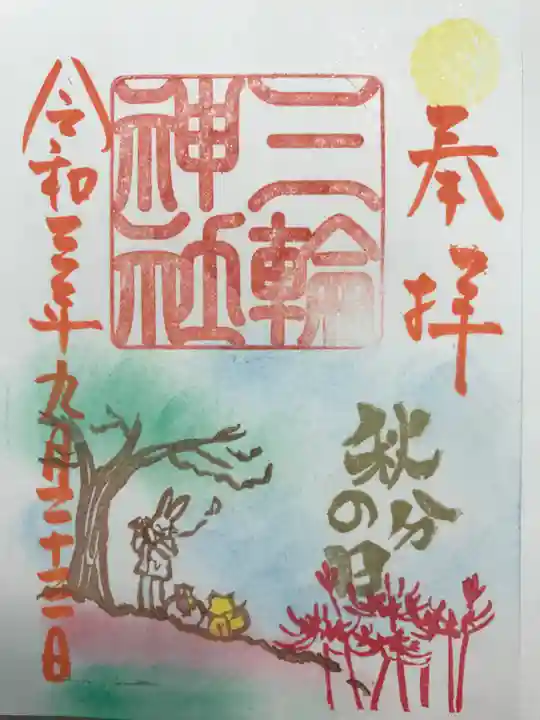 奉拝
秋分の日
三輪
神社
令和三年九月二十三日